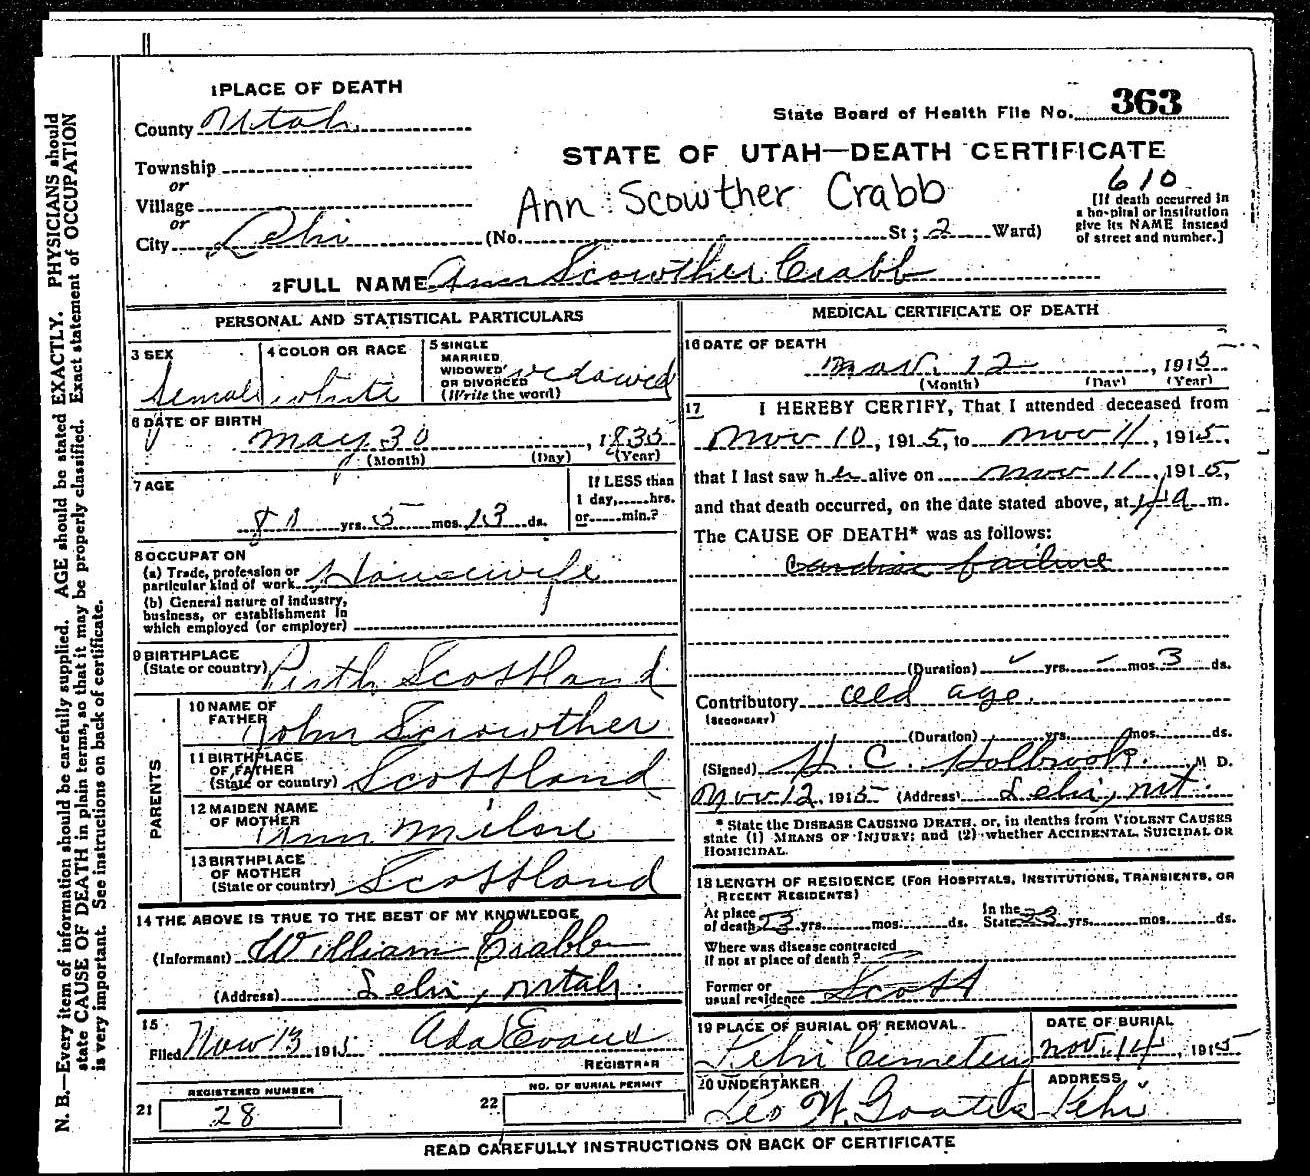 1 PLACE OF DEATH
County Utah
State Board of Health File No. 363
Township
or
STATE OF UTAH—DEATH CERTIFICATE
610
Village
or
Ann Scowther Crabb
[If death occurred in a hospital or institution give its NAME instead of street and number.]
City Lehi (No. St; 2 Ward)
2 FULL NAME Ann Scowther Crabb
PERSONAL AND STATISTICAL PARTICULARS
3 SEX
Female
4 COLOR OR RACE
white
5 SINGLE
MARRIED
WIDOWED
OR DIVORCED
(Write the word)
widowed
6 DATE OF BIRTH
May 30, 1835
(Month) (Day) (Year)
7 AGE
yrs. 5 mos. 13 ds.
If LESS than
1 day, hrs.
or min.?
8 OCCUPATION
(a) Trade, profession or
particular kind of work Housewife
(b) General nature of industry,
business, or establishment in
which employed (or employer)
9 BIRTHPLACE
(State or country) Perth Scottland
PARENTS
10 NAME OF
FATHER John Scrowther
11 BIRTHPLACE
OF FATHER
(State or country) Scottland
12 MAIDEN NAME
OF MOTHER Ann Milne
13 BIRTHPLACE
OF MOTHER
(State or country) Scottland
14 THE ABOVE IS TRUE TO THE BEST OF MY KNOWLEDGE
(Informant) William Crabb
(Address) Lehi, Utah.
15
Filed Nov 13 1915 Ada Evans
REGISTRAR
REGISTERED NUMBER
21 28
NO. OF BURIAL PERMIT
22
MEDICAL CERTIFICATE OF DEATH
16 DATE OF DEATH
Nov. 12, 1915
(Month) (Day) (Year)
17 I HEREBY CERTIFY, That I attended deceased from
Nov 10, 1915, to Nov 11, 1915,
that I last saw h er alive on Nov 11, 1915,
and that death occurred, on the date stated above, at m.
The CAUSE OF DEATH* was as follows:
Cardiac failure
(Duration) yrs. mos. 3 ds.
Contributory Old age.
(SECONDARY)
(Duration) yrs. mos. ds.
(Signed) H. C. Holbrook. M D.
Nov 12, 1915 (Address) Lehi, Ut.
* State the DISEASE CAUSING DEATH, or, in deaths from VIOLENT CAUSES
state (1) MEANS OF INJURY; and (2) whether ACCIDENTAL, SUICIDAL OR
HOMICIDAL.
18 LENGTH OF RESIDENCE (FOR HOSPITALS, INSTITUTIONS, TRANSIENTS, OR
RECENT RESIDENTS)
At place
of death 23 yrs. mos. ds. In the
State 23 yrs. mos. ds.
Where was disease contracted
if not at place of death?
Former or
usual residence Scott
19 PLACE OF BURIAL OR REMOVAL
Lehi Cemetery
DATE OF BURIAL
Nov. 14, 1915
20 UNDERTAKER
Leo W. Goates
ADDRESS
Lehi
READ CAREFULLY INSTRUCTIONS ON BACK OF CERTIFICATE
N. B.—Every item of information should be carefully supplied. AGE should be stated EXACTLY. PHYSICIANS should
state CAUSE OF DEATH in plain terms, so that it may be properly classified. Exact statement of OCCUPATION
is very important. See instructions on back of certificate.